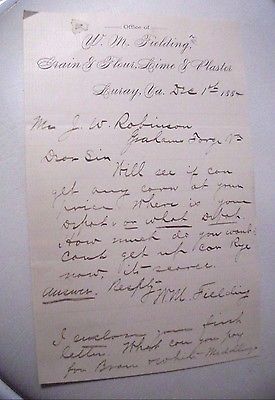 Office of
W. M. Fielding,
Grain & Flour, Lime & Plaster
Luray, Va. Dec 1st 188
Mr J. W. Robinson
Grahams Forge Va
Dear Sir
Will see if can
get any corn at your
price. Where is your
Depot, on what Depot.
How much do you want
Cant get up can Rye
now, its scarce.
Answer. Respt
WM. Fielding
I enclose your first
letter. What can you pay
for Bran & wheat Middlings